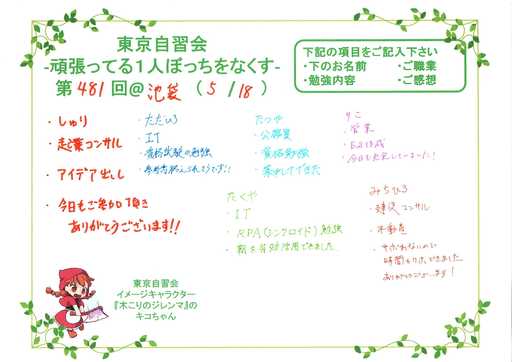 東京自習会
-頑張ってる1人ぼっちをなくす-
第481回@池袋(5/18)
下記の項目をご記入下さい
・下のお名前 ・ご職業
・勉強内容 ・ご感想
・しゅり
・起業コンサル
・アイデア出し
・今日もご参加頂き
ありがとうございます!!
・ただひろ
・IT
・資格試験の勉強
たつや
・公務員
・資格勉強
・集中してできた
りこ
・営業
・今日も充実してましたー!
たくや
・IT
・RPA(シンクロイド)勉強
・朝の時間活用できました
みちひろ
・建設コンサル
・不動産
ありがとうございます!
東京自習会
イメージキャラクター
『木こりのジレンマ』の
キコちゃん